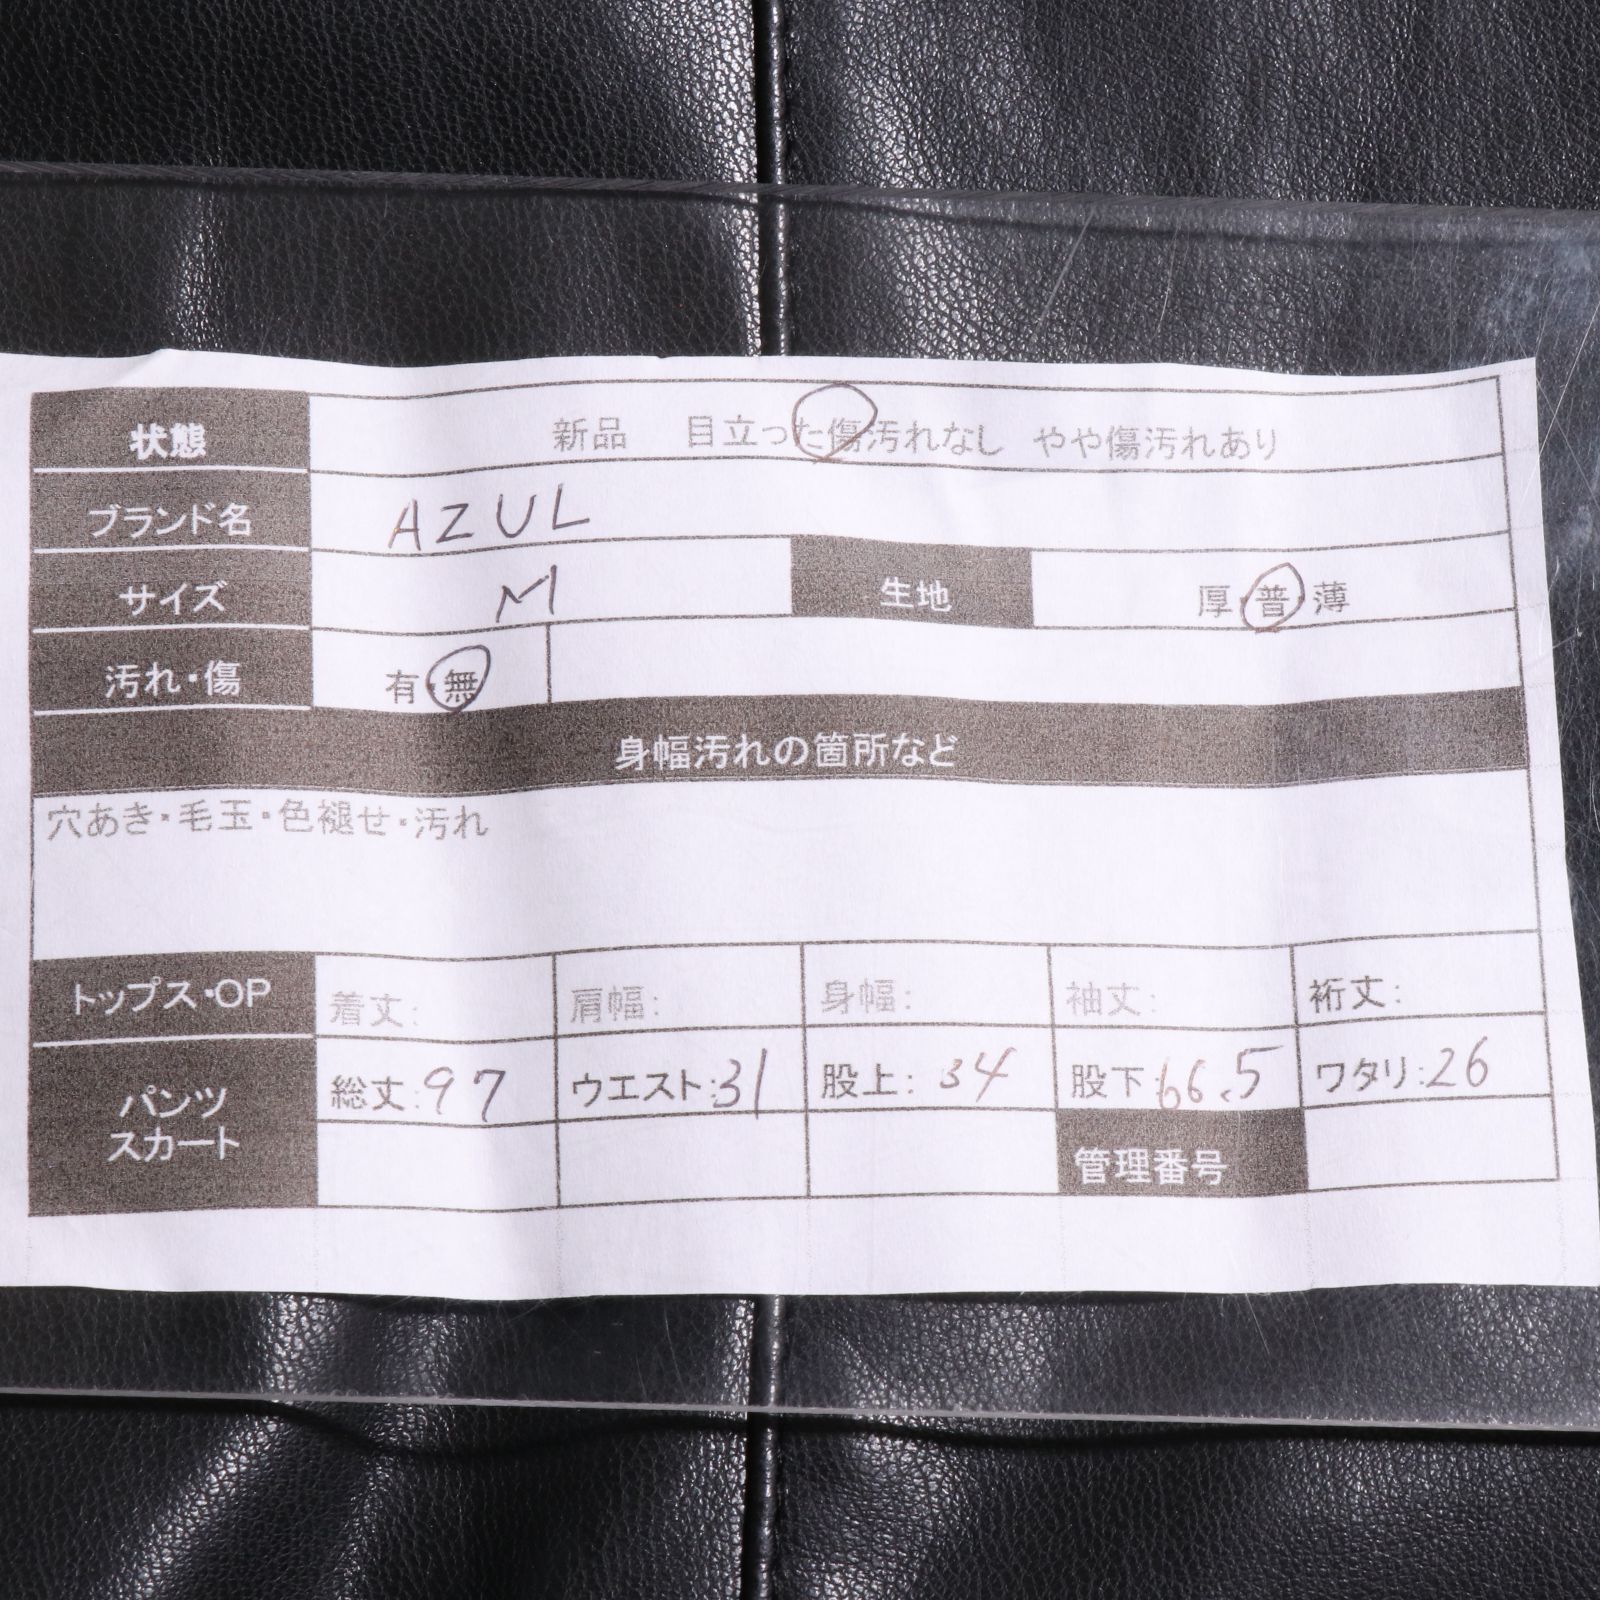 状態 新品 目立った傷汚れなし やや傷汚れあり
ブランド名 AZUL
サイズ M 生地 厚・普・薄
汚れ・傷 有・無
身幅汚れの箇所など
穴あき・毛玉・色褪せ・汚れ
トップス・OP 着丈: 肩幅: 身幅: 袖丈: 裄丈:
パンツ スカート 総丈:97 ウエスト:31 股上:34 股下:66.5 ワタリ:26
管理番号